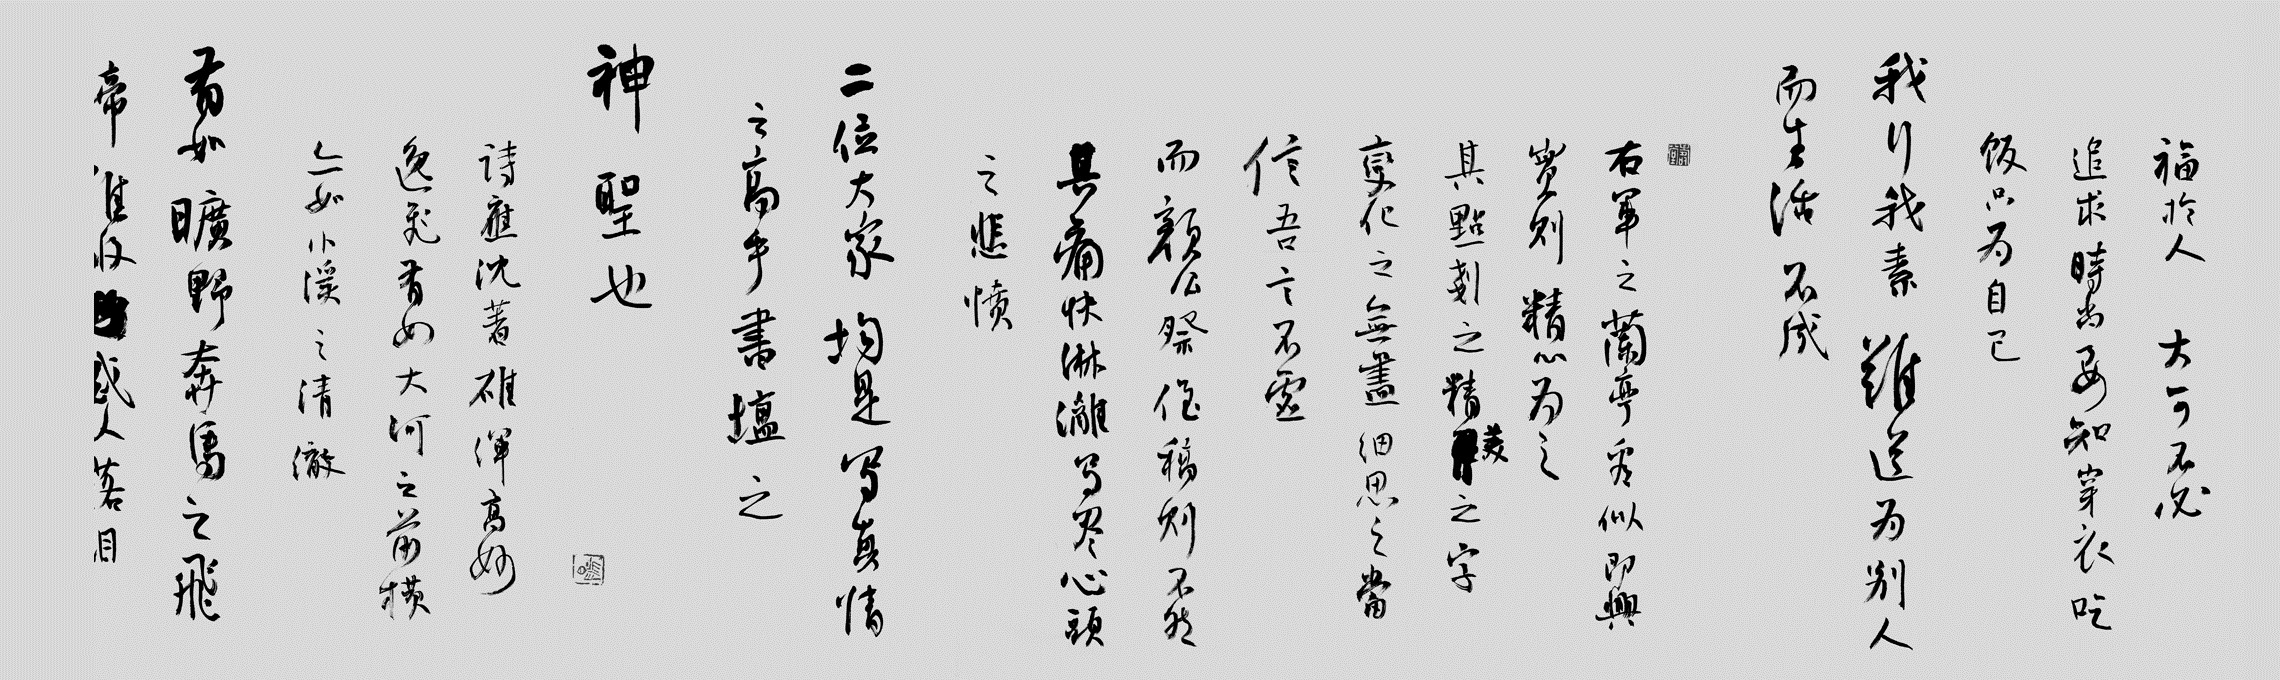 福於人 大可不必
追求時尚 要知穿衣吃
飯只为自己
我行我素 難道为别人
而生活 不成
右軍之蘭亭看似即興
實則 精心为之
其點劃之精美之字
變化之無盡 細思之當
信吾言不虛
而顏公祭侄稿則不然
其痛快淋漓写尽心頭
之悲憤
二位大家 均是写真情
之高手書壇之
神聖也
詩雄沈著雄渾高妙
逸飛有如大河之前横
亦如小溪之清澈
有如曠野奔馬之飛
人若目